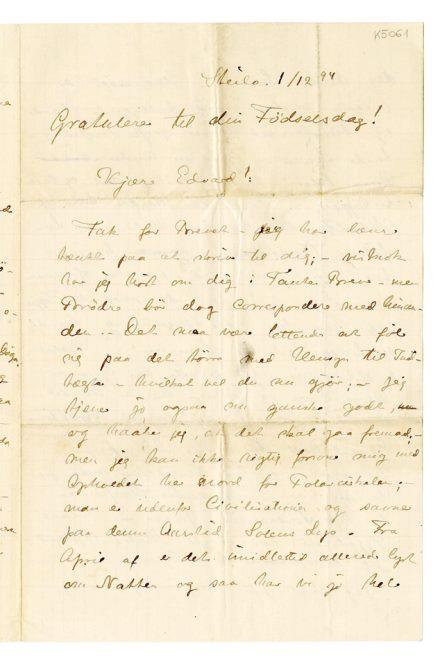 K5061
Steilo. 1/12 94
Gratulerer til din Fødselsdag!
Kjære Edvard!:
Tak for Brevet – jeg har længe
tænkt paa at skrive til dig; –
har jeg hørt om dig i Tantes Breve – men
Brødre bør dog correspondere med hinan-
den. – Det maa være lettende at føle
sig paa det tørre med Hensyn til Ind-
tægter – hvilket vel du nu gjør; – jeg
tjener jo ogsaa nu ganske godt,
og haaber jeg, at det skal gaa fremad; –
men jeg kan ikke rigtig forsone mig med
Opholdet her nord for Polarcirkelen; –
man er udenfor Civilisationen og savner
paa denne Aarstid Solens Lys. Fra
April af er det imidlertid allerede lyst
om Natten og saa har vi jo hele